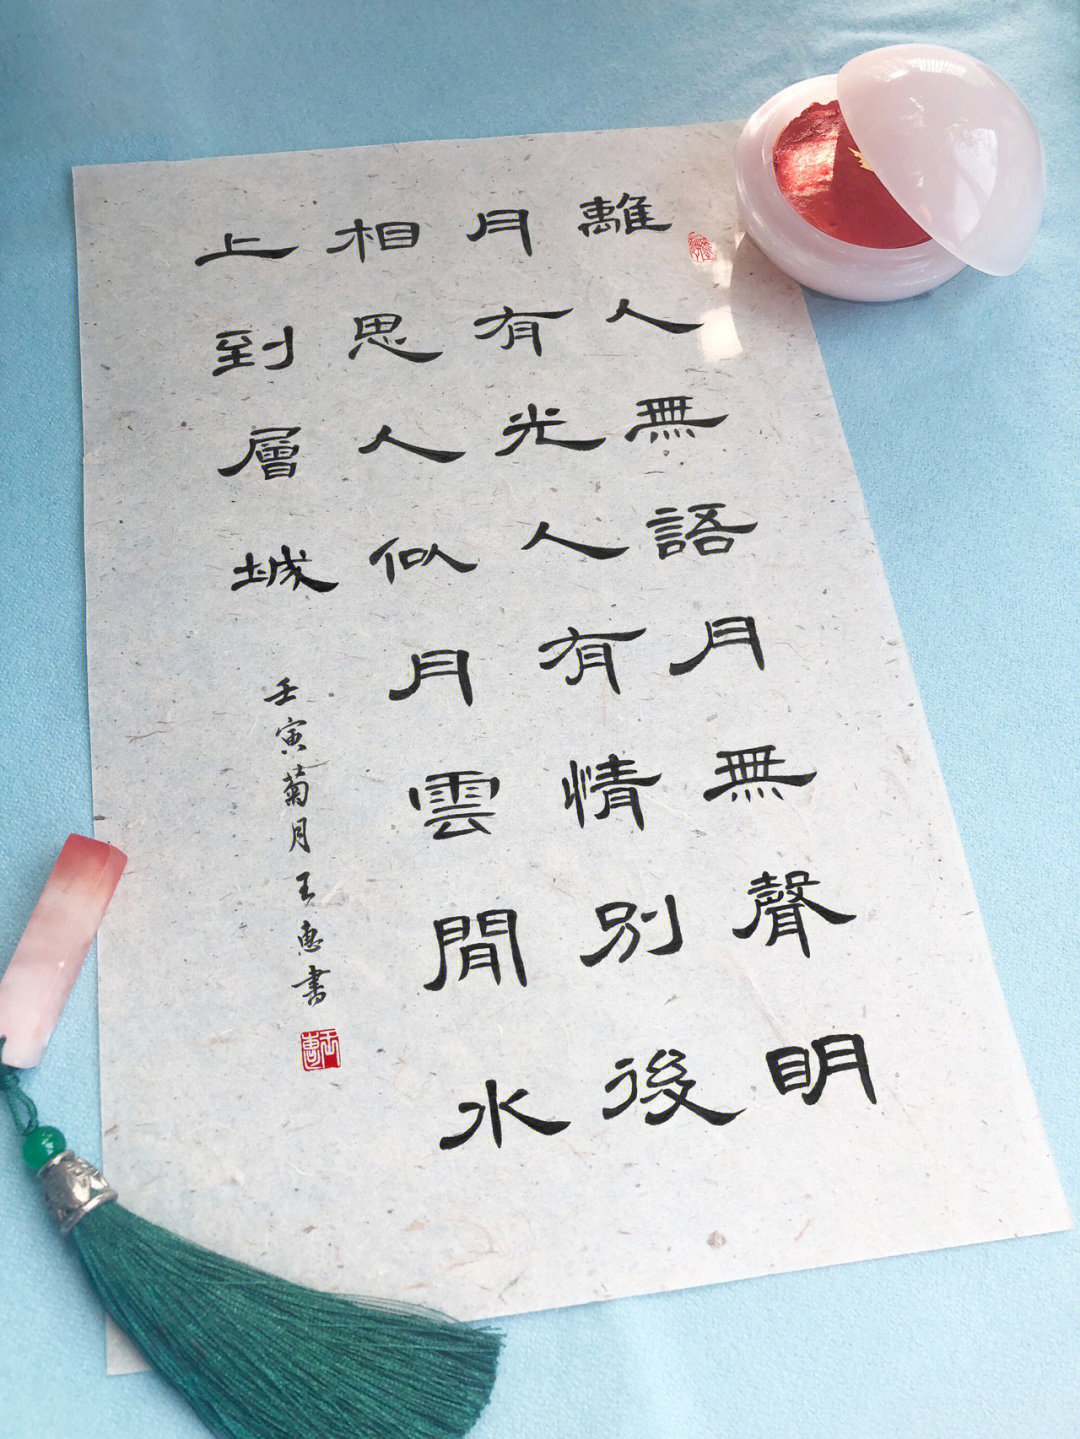 離人無語月無聲明
月有光人有情別後
相思人似月雲間水
上到層城
壬寅菊月王惠書
王惠